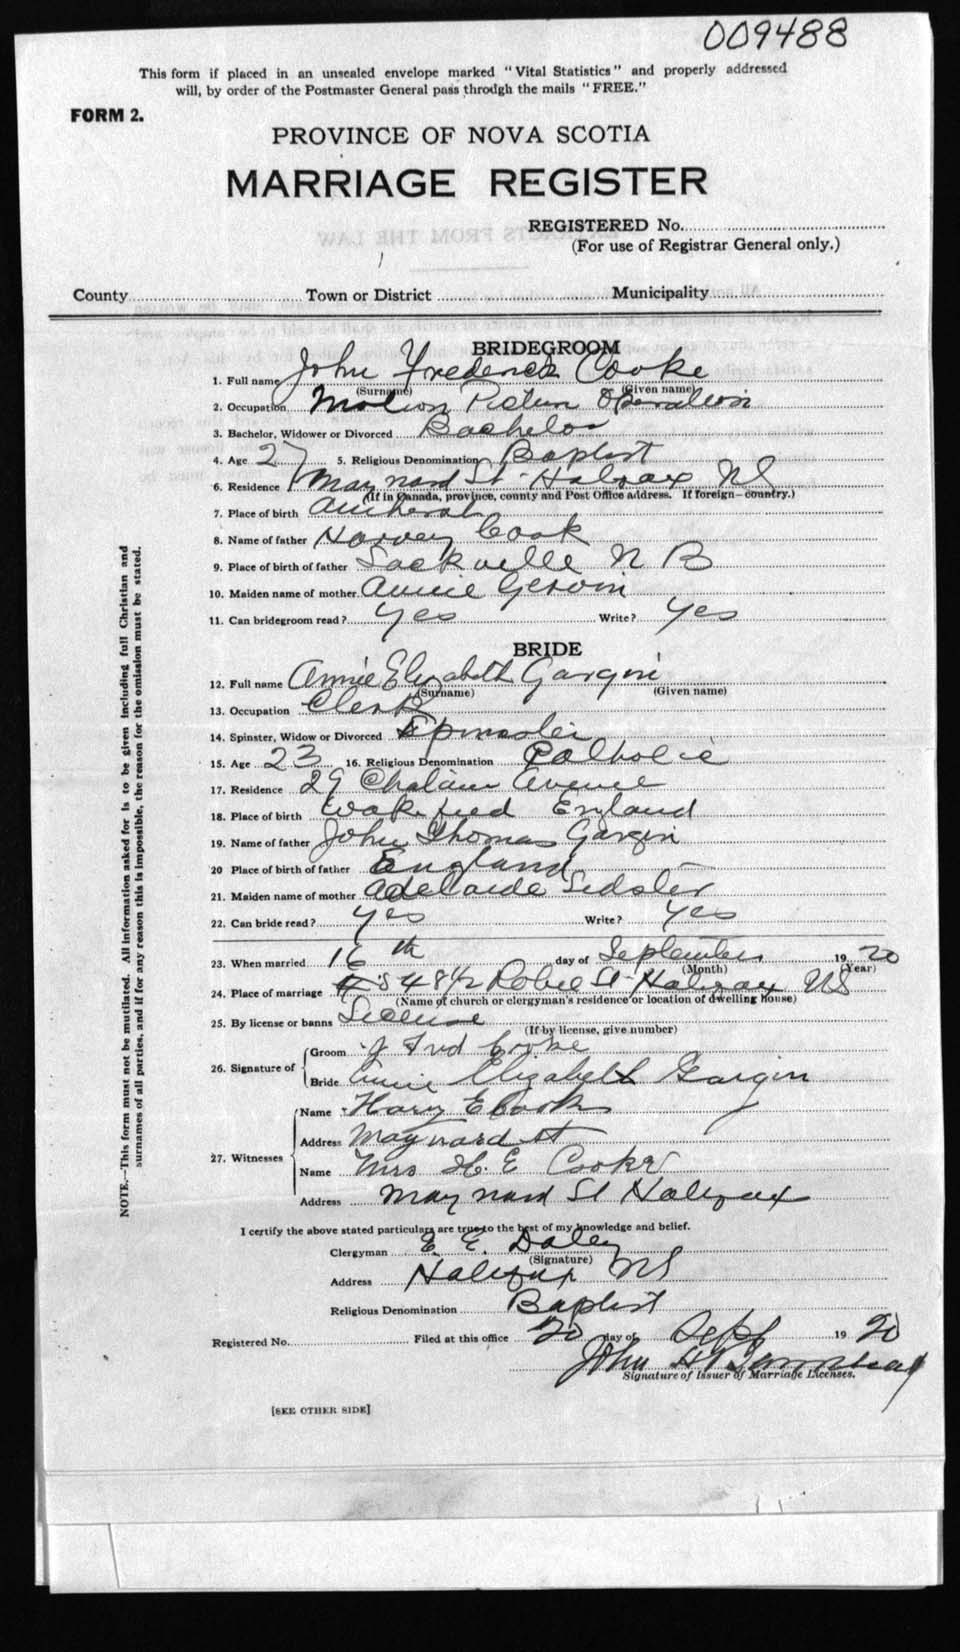 009488
This form if placed in an unsealed envelope marked "Vital Statistics" and properly addressed
will, by order of the Postmaster General pass through the mails "FREE."
FORM 2.
PROVINCE OF NOVA SCOTIA
MARRIAGE REGISTER
REGISTERED No.
(For use of Registrar General only.)
County Town or District Municipality
BRIDEGROOM
1. Full name John Frederick Cooke
(Surname) (Given name)
2. Occupation Motion Picture Operator
3. Bachelor, Widower or Divorced Bachelor
4. Age 27 5. Religious Denomination Baptist
6. Residence Maynard St. Halifax NS
(If in Canada, province, county and Post Office address. If foreign—country.)
7. Place of birth Amherst
8. Name of father Harvey Cook
9. Place of birth of father Sackville N B
10. Maiden name of mother Annie
11. Can bridegroom read? yes Write? yes
BRIDE
12. Full name Annie Elizabeth Gargin
(Surname) (Given name)
13. Occupation Clerk
14. Spinster, Widow or Divorced Spinster
15. Age 23 16. Religious Denomination Catholic
17. Residence 29 Avenue
18. Place of birth Wakefield England
19. Name of father John Thomas Gargin
20 Place of birth of father England
21. Maiden name of mother Adelaide
22. Can bride read? yes Write? yes
23. When married 16th day of September 1920
(Month) (Year)
24. Place of marriage 548 1/2 Robie St Halifax NS
(Name of church or clergyman's residence or location of dwelling house)
25. By license or banns License
(If by license, give number)
26. Signature of Groom J Fred Cooke
Bride Annie Elizabeth Gargin
27. Witnesses Name Harry E Cooke
Address Maynard st
Name Mrs H. E Cooke
Address Maynard St Halifax
I certify the above stated particulars are true to the best of my knowledge and belief.
Clergyman E. E. Daley
(Signature)
Address Halifax NS
Religious Denomination Baptist
Registered No. Filed at this office 20 day of Sept 1920
John H
Signature of Issuer of Marriage Licenses.
[SEE OTHER SIDE]
NOTE.—This form must not be mutilated. All information asked for is to be given including full Christian and
surnames of all parties, and if for any reason this is impossible, the reason for the omission must be stated.